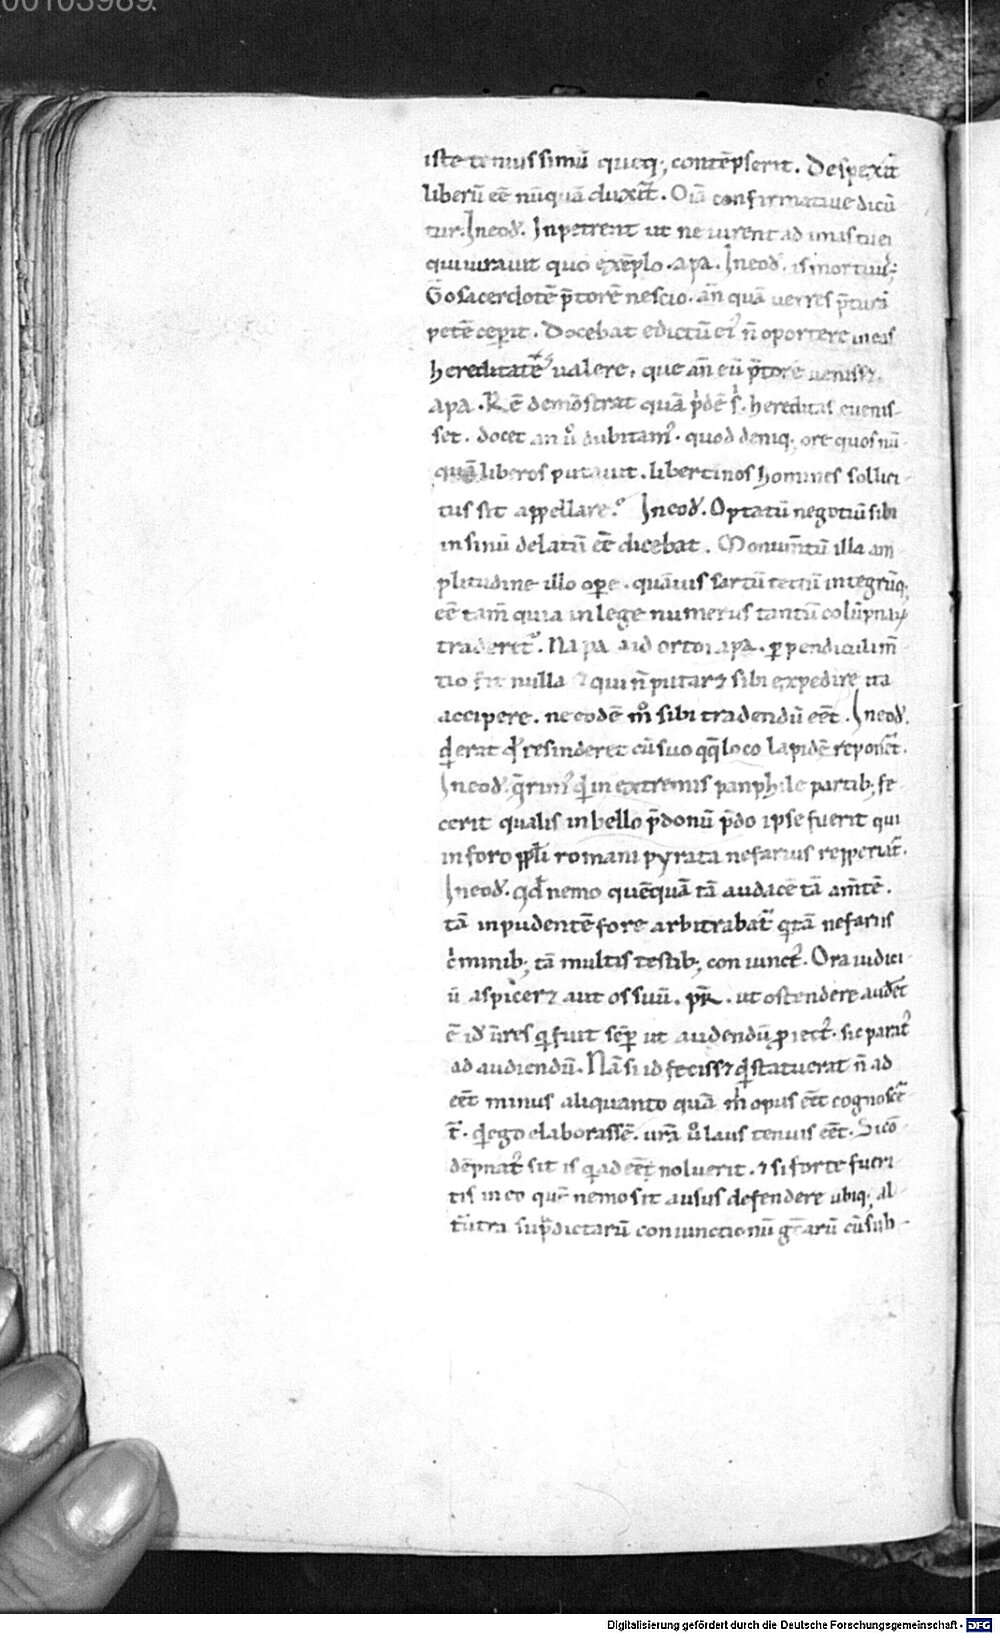 00103989
iste tenuissimū queq; contēpserit. Despexit̄
liberū eē nūquā duxit̄. Oīa confirmatiue dicū
tur. In eoď. Inpetrent ut ne iurent ad unas tuei
qui iurauit quo exēplo. apa. In eoď. is mortuus;
sacerdotē p̄torē nescio. an̄ quā uerres p̄turā
petē ceperit. Docebat edictū n̄ oportere in eas
hereditatē ualere, que an̄ eū p̄torē uenisset.
apa. Rē demōstrat quā hereditas euenis-
set. docet an dubitam̄. quod deniq; ore quos nū
quā liberos putauit. libertinos homines sollici-
tus sit appellare. In eoď. Optatū negotiū sibi
in sinū delatū eē dicebat. Monum̄tū illa am
plitudine illo ope. quāuis sartū tectū integrūq;
eē tam̄ quia in lege numerus tantū colūpnaꝝ
traderet. Na pa ꝑpendiculi m̄
tio fit nulla & qui n̄ putaret sibi expedire ita
accipere. ne eodē m̊ sibi tradendū eēt. In eoď.
erat resinderet cū suo qq̄ loco lapidē reponēt.
In eoď. in extremis panphile partib; fe
cerit qualis in bello p̄donū p̄do ipse fuerit qui
in foro ppl̄i romani pyrata nefarius repperiat̄.
In eoď. qď nemo quēquā tā audacē tā am̄tē.
tā inpudentē fore arbitrabat̄ tā nefariis
c̍minib; tā multis testib; conuinct̄. Ora iudici
ū aspiceret aut os suū. ut ostendere audēt
ē id fuit sēp ut audendū ꝓiect̄. sic parat̄
ad audiendū. Nā si id fecisset statuerat n̄ ad
eēt minus aliquanto quā m̍ opus eēt cognoscēt̄
ego elaborassē. ur̄a laus tenuis eēt. Si cō-
dēpnat̄ sit is q̍ adeēt noluerit. & si forte fueri
tis in eo quē nemo sit ausus defendere ubiq; al
tutra supdictarū coniunctionū cū sub-
Digitalisierung gefördert durch die Deutsche Forschungsgemeinschaft - DFG